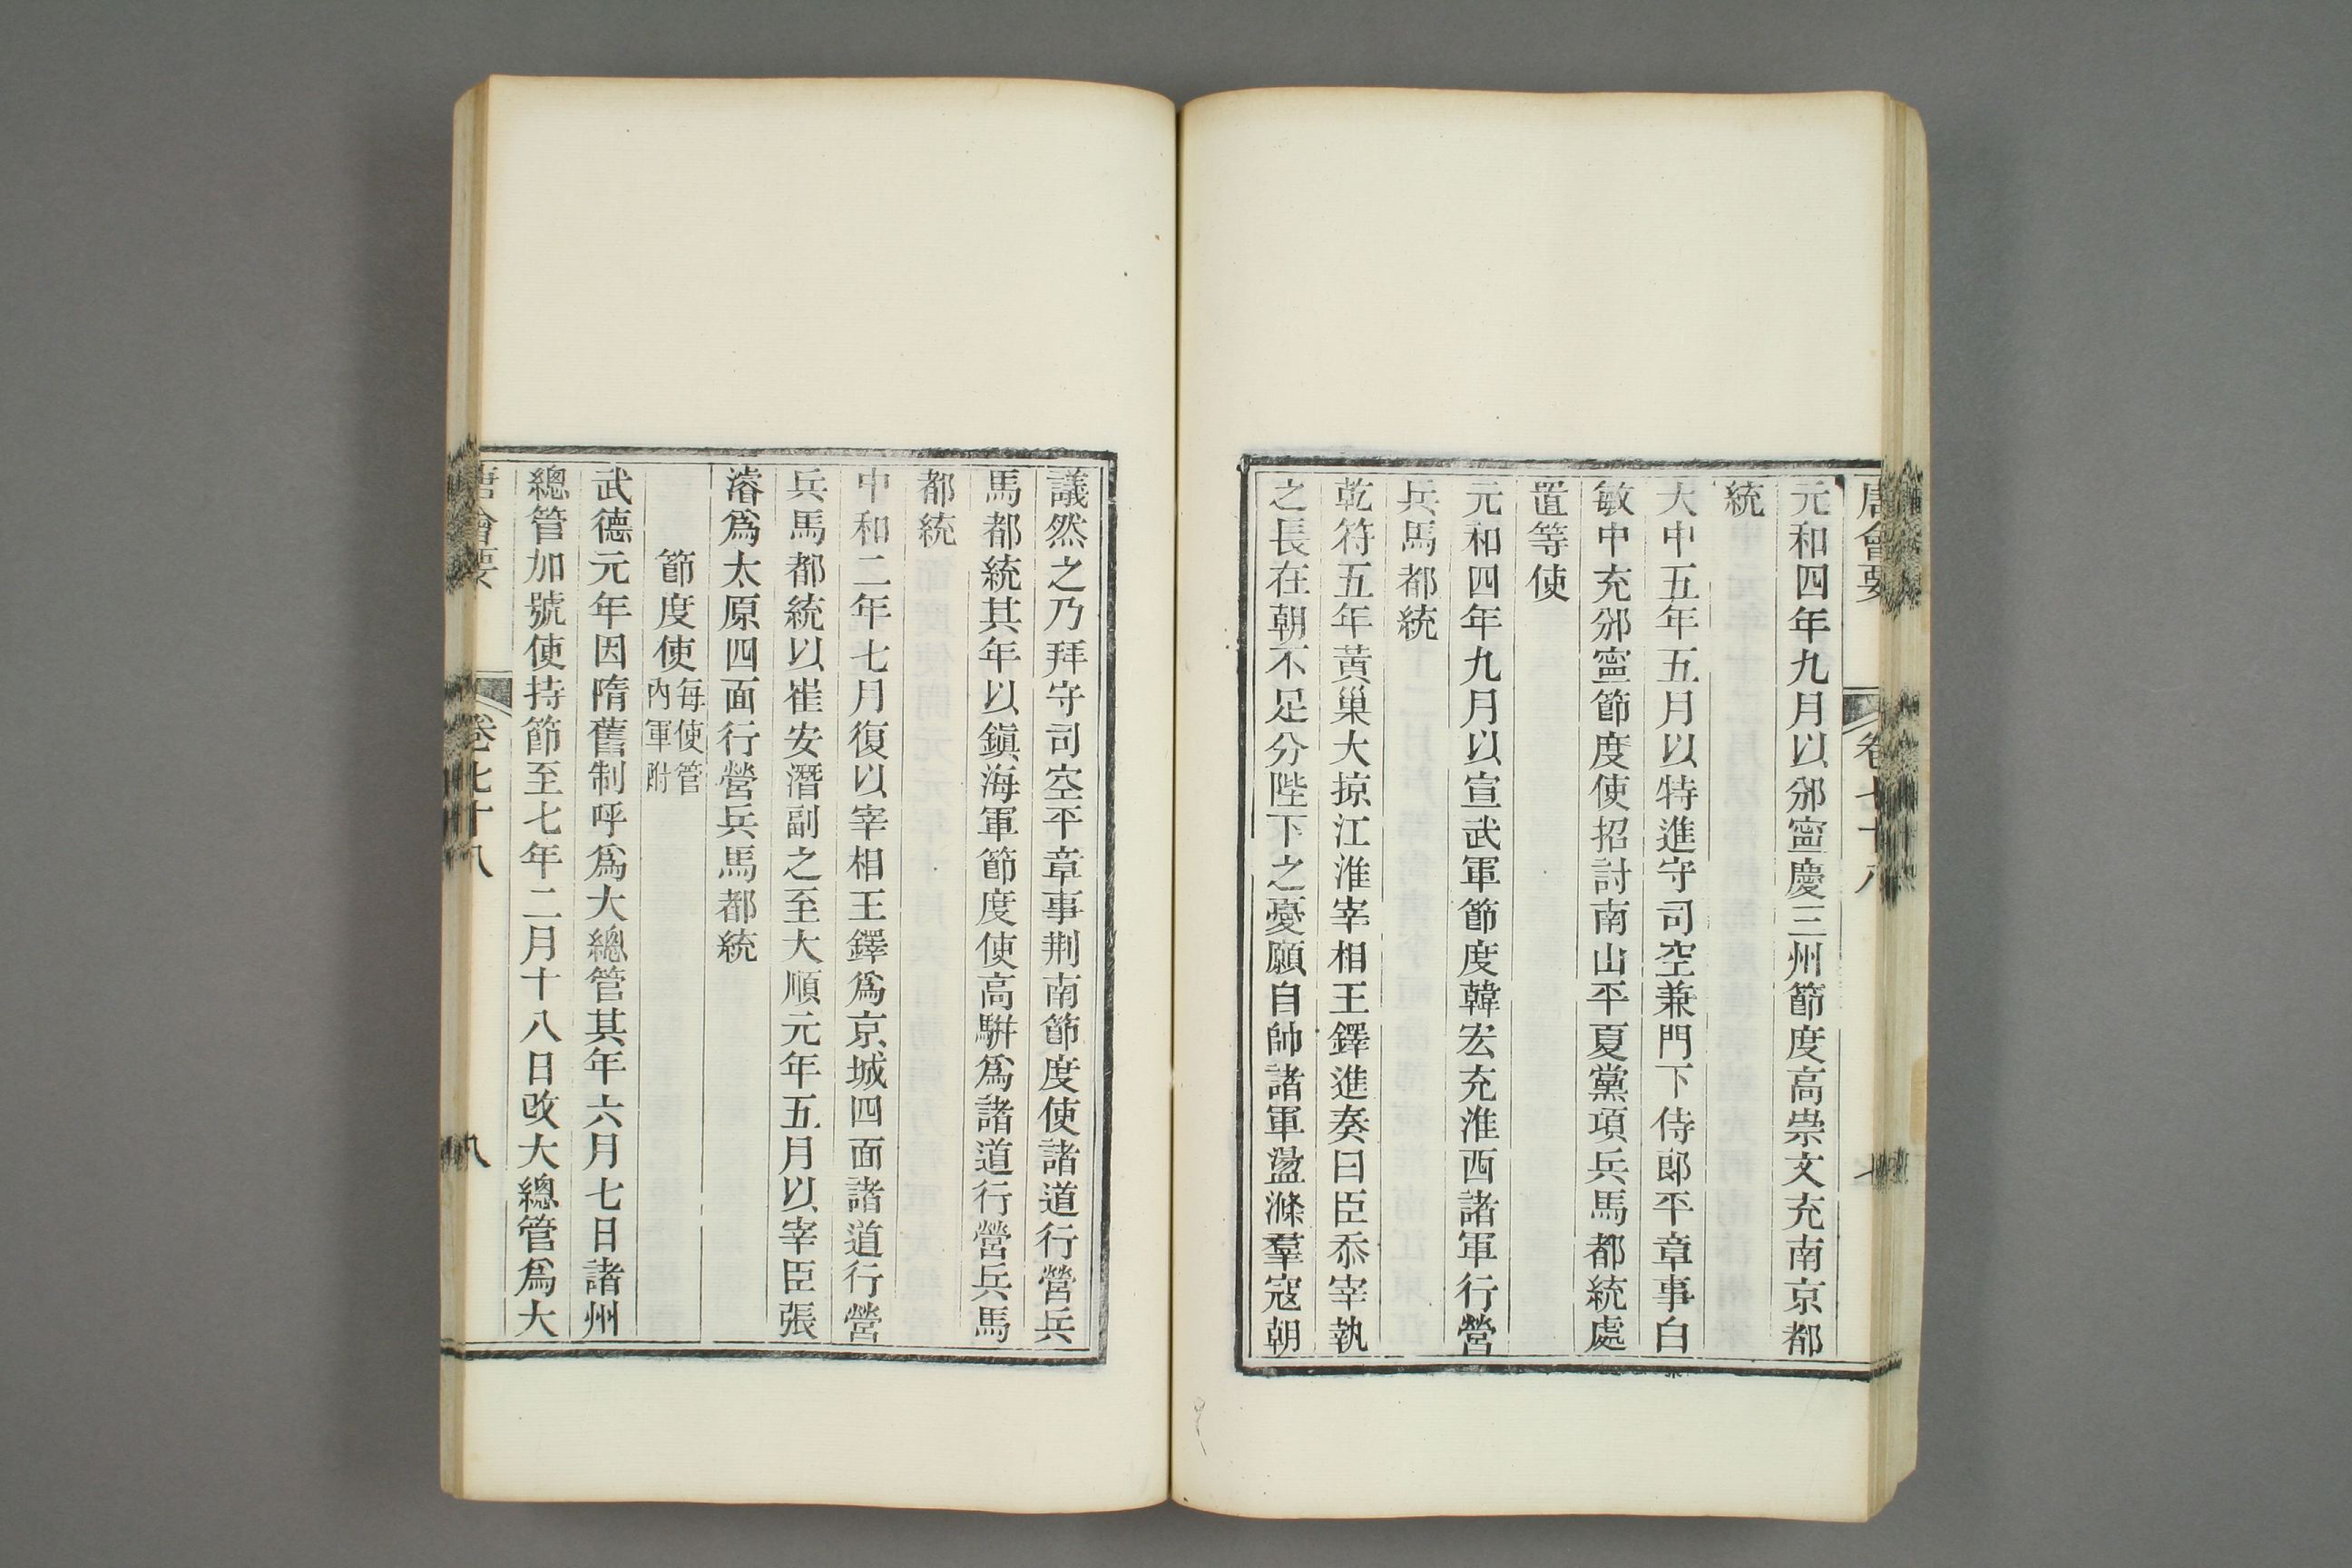 唐會要 卷七十八 七
元和四年九月以邠寧慶三州節度高崇文充南京都
統
大中五年五月以特進守司空兼門下侍郞平章事白
敏中充邠寧節度使招討南山平夏黨項兵馬都統處
置等使
元和四年九月以宣武軍節度韓宏充淮西諸軍行營
兵馬都統
乾符五年黃巢大掠江淮宰相王鐸進奏曰臣忝宰執
之長在朝不足分陛下之憂願自帥諸軍盪滌羣寇朝
議然之乃拜守司空平章事荆南節度使諸道行營兵
馬都統其年以鎭海軍節度使高駢爲諸道行營兵馬
都統
中和二年七月復以宰相王鐸爲京城四面諸道行營
兵馬都統以崔安潛副之至大順元年五月以宰臣張
濬爲太原四面行營兵馬都統
節度使每使管內軍附
武德元年因隋舊制呼爲大總管其年六月七日諸州
總管加號使持節至七年二月十八日改大總管爲大
唐會要 卷七十八 八